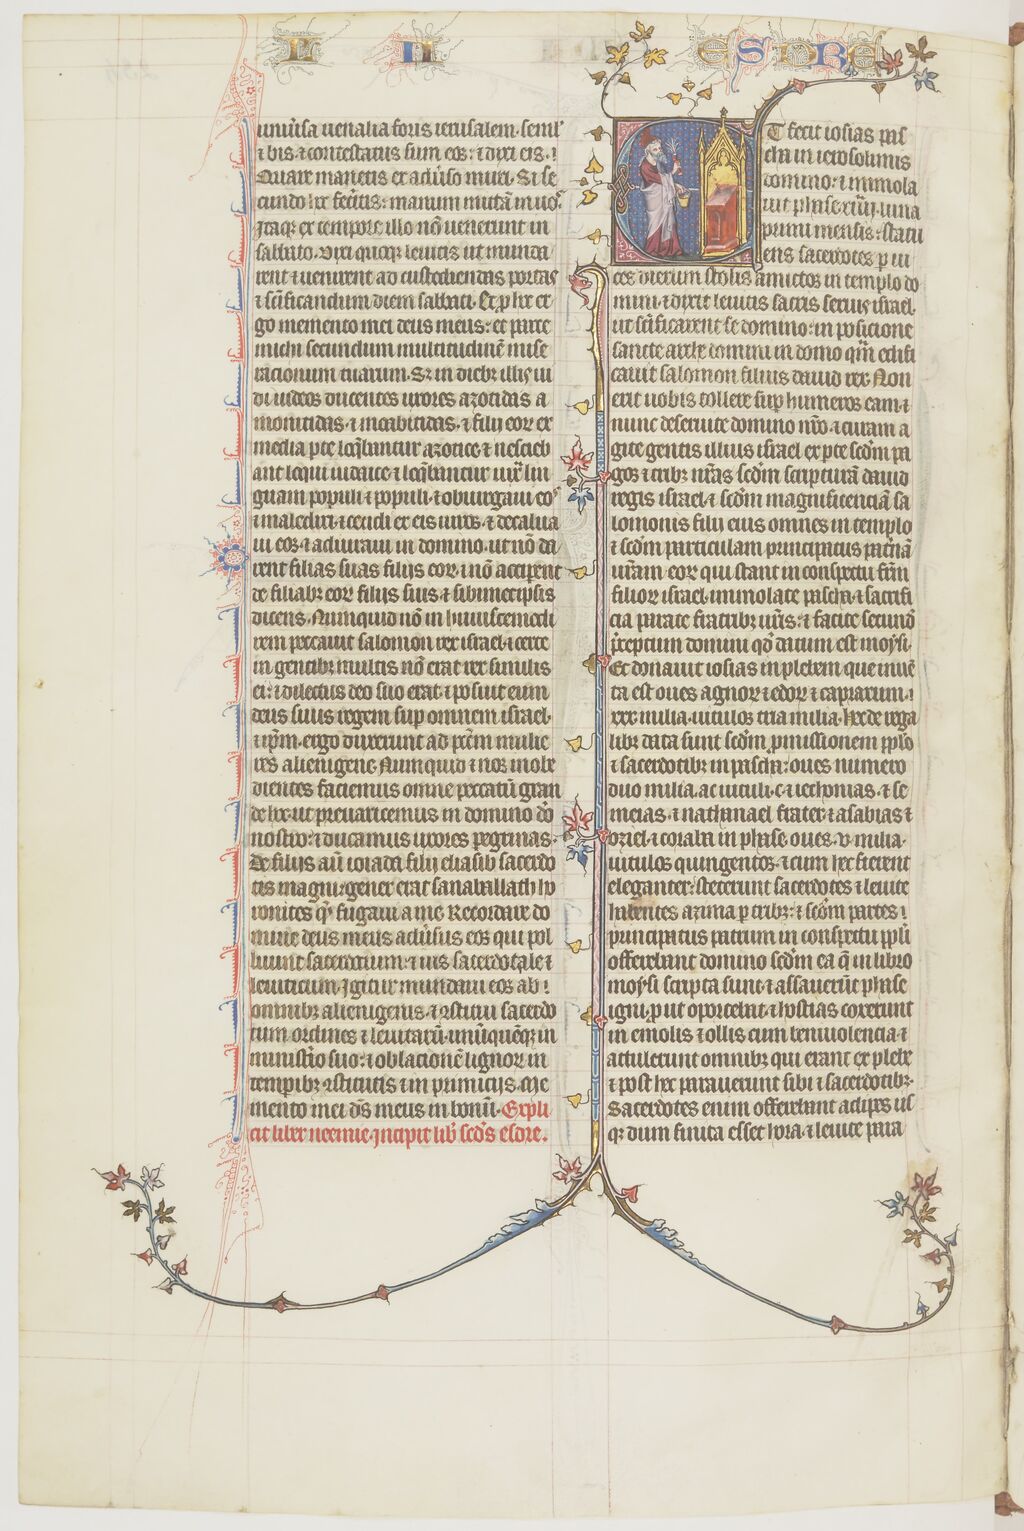 L II ESDRE
uniu͛sa uenalia foris ierusalem· semł
⁊ bis· ⁊ contestatus sum eos: ⁊ dixi eis·
Quare manetis ex adu͛so muri· Si se
cundo hec fec͛itis: manum mittā in uoꝫ
Itaqꝫ ex tempore illo nō uenerunt in
sabbato· Dixi quoqꝫ leuitis ut munda
rent͛ ⁊ uenirent ad custodiendas portas
⁊ sc̄ificandum diem sabbati· Et ꝓ hoc er
go memento mei deus meus: et parce
michi secundum multitudinē mise
racionum tuarum· Sꝫ in diebꝫ illis ui
di iudeos ducentes uxores azotidas a
monitidas· ⁊ moabitidas· ⁊ filij eoꝝ ex
media ꝑte loq̄bantur azotice ⁊ nescieb
ant loqui iudaice ⁊ loq̄bantur iux̄ lin
guam populi ⁊ populi· ⁊ obiurgaui eos
⁊ maledixi· ⁊ cecidi ex eis uiros· ⁊ decalua
ui eos· ⁊ adiuraui in domino· ut nō da
rent filias suas filijs eoꝝ· ⁊ nō acciperent
de filiabꝫ eoꝝ filijs suis ⁊ sibimetipsis
dicens· Nunquid nō in huiuscemodi
rem peccauit salomon rex israel· ⁊ certe
in gentibꝫ multis nō erat rex similis
ei: ⁊ dilectus deo suo erat· ⁊ posuit eum
deus suus regem suꝑ omnem israel·
⁊ ip̄m· ergo duxerunt ad pc̄m mulie
res alienigene· Nunquid ⁊ nos inobe
dientes faciemus omne peccatū gran
de hoc· ut preuaricemus in domino dō
nostro: ⁊ ducamus uxores ꝑegrinas·
De filiis aū ioiada filij eliasib sacerdo
tis magni· gener erat sanaballath ho
ronites q̄ fugaui a me· Recordare do
mine deus meus adu͛sus eos qui pol
luunt sacerdotium· ⁊ ius sacerdotale ⁊
leuiticum· Igitur mundaui eos ab
omnibꝫ alienigenis· ⁊ ꝯstitui sacerdo
tum ordines ⁊ leuitaꝝ· unūquēqꝫ in
minist͛io suo: ⁊ oblacionē lignoꝝ in
temporibꝫ ꝯstitutis ⁊ in primicijs· Me
mento mei dꝰs meus in bonū· Expli
cit liber neemie· Incipit lib̄ scd̄s esdre.
ET fecit iosias pas
cha in ierosolimis
domino: ⁊ immola
uit phase· xiiij· luna
primi mensis: statu
ens sacerdotes ꝑ ui
ces dierum stolis amictos in templo do
mini· ⁊ dixit leuitis sacris seruis israel·
ut sc̄ificarent se domino: in posicione
sancte arche domini in domo qm̄ edifi
cauit salomon filius dauid rex· Non
erit uobis tollere suꝑ humeros eam· ⁊
nunc deseruite domino nr̄o· ⁊ curam a
gite gentis illius israel ex ꝑte scd̄m pa
gos ⁊ tribꝫ ur̄as scd̄m scripturā dauid
regis israel· ⁊ scd̄m magnificenciā sa
lomonis filij eius omnes in templo
⁊ scd̄m particulam principatus pat͛nā
ur̄am· eoꝝ qui stant in conspectu fr̄m
filioꝝ israel· immolate pascha· ⁊ sacrifi
cia parate fratribꝫ ur̄is: ⁊ facite secunō
p̄ceptum domini qd̄ datum est moysi·
Et donauit iosias in plebem que inuē
ta est oues agnoꝝ ⁊ edoꝝ ⁊ caprarum·
xxx· milia· uitulos tria milia· Hec de rega
libꝫ data sunt scd̄m ꝓmissionem pp̄lo
⁊ sacerdotibꝫ in pascha: oues numero
duo milia· ac uituli· c· ⁊ iechonias· ⁊ se
meias· ⁊ nathanael frater: ⁊ asabias ⁊
oziel· ⁊ coraba in phase· oues· v· milia·
uitulos quingentos· ⁊ cum hec fierent
eleganter: steterunt sacerdotes ⁊ leuite
habentes azima ꝑ tribꝫ: ⁊ scd̄m partes
principatus patrum in conspectu pp̄li
offerebant domino scd̄m ea q̄ in libro
moysi scripta sunt· ⁊ assauerūt phase
igni· ꝓut oporcebat· ⁊ hostias coxerunt
in emolis ⁊ ollis cum beniuolencia· ⁊
actulerunt omnibꝫ qui erant ex plebe
⁊ post hec parauerunt sibi ⁊ sacerdotibꝫ·
Sacerdotes enim offerebant adipes us
qꝫ dum finita esset hora· ⁊ leuite para